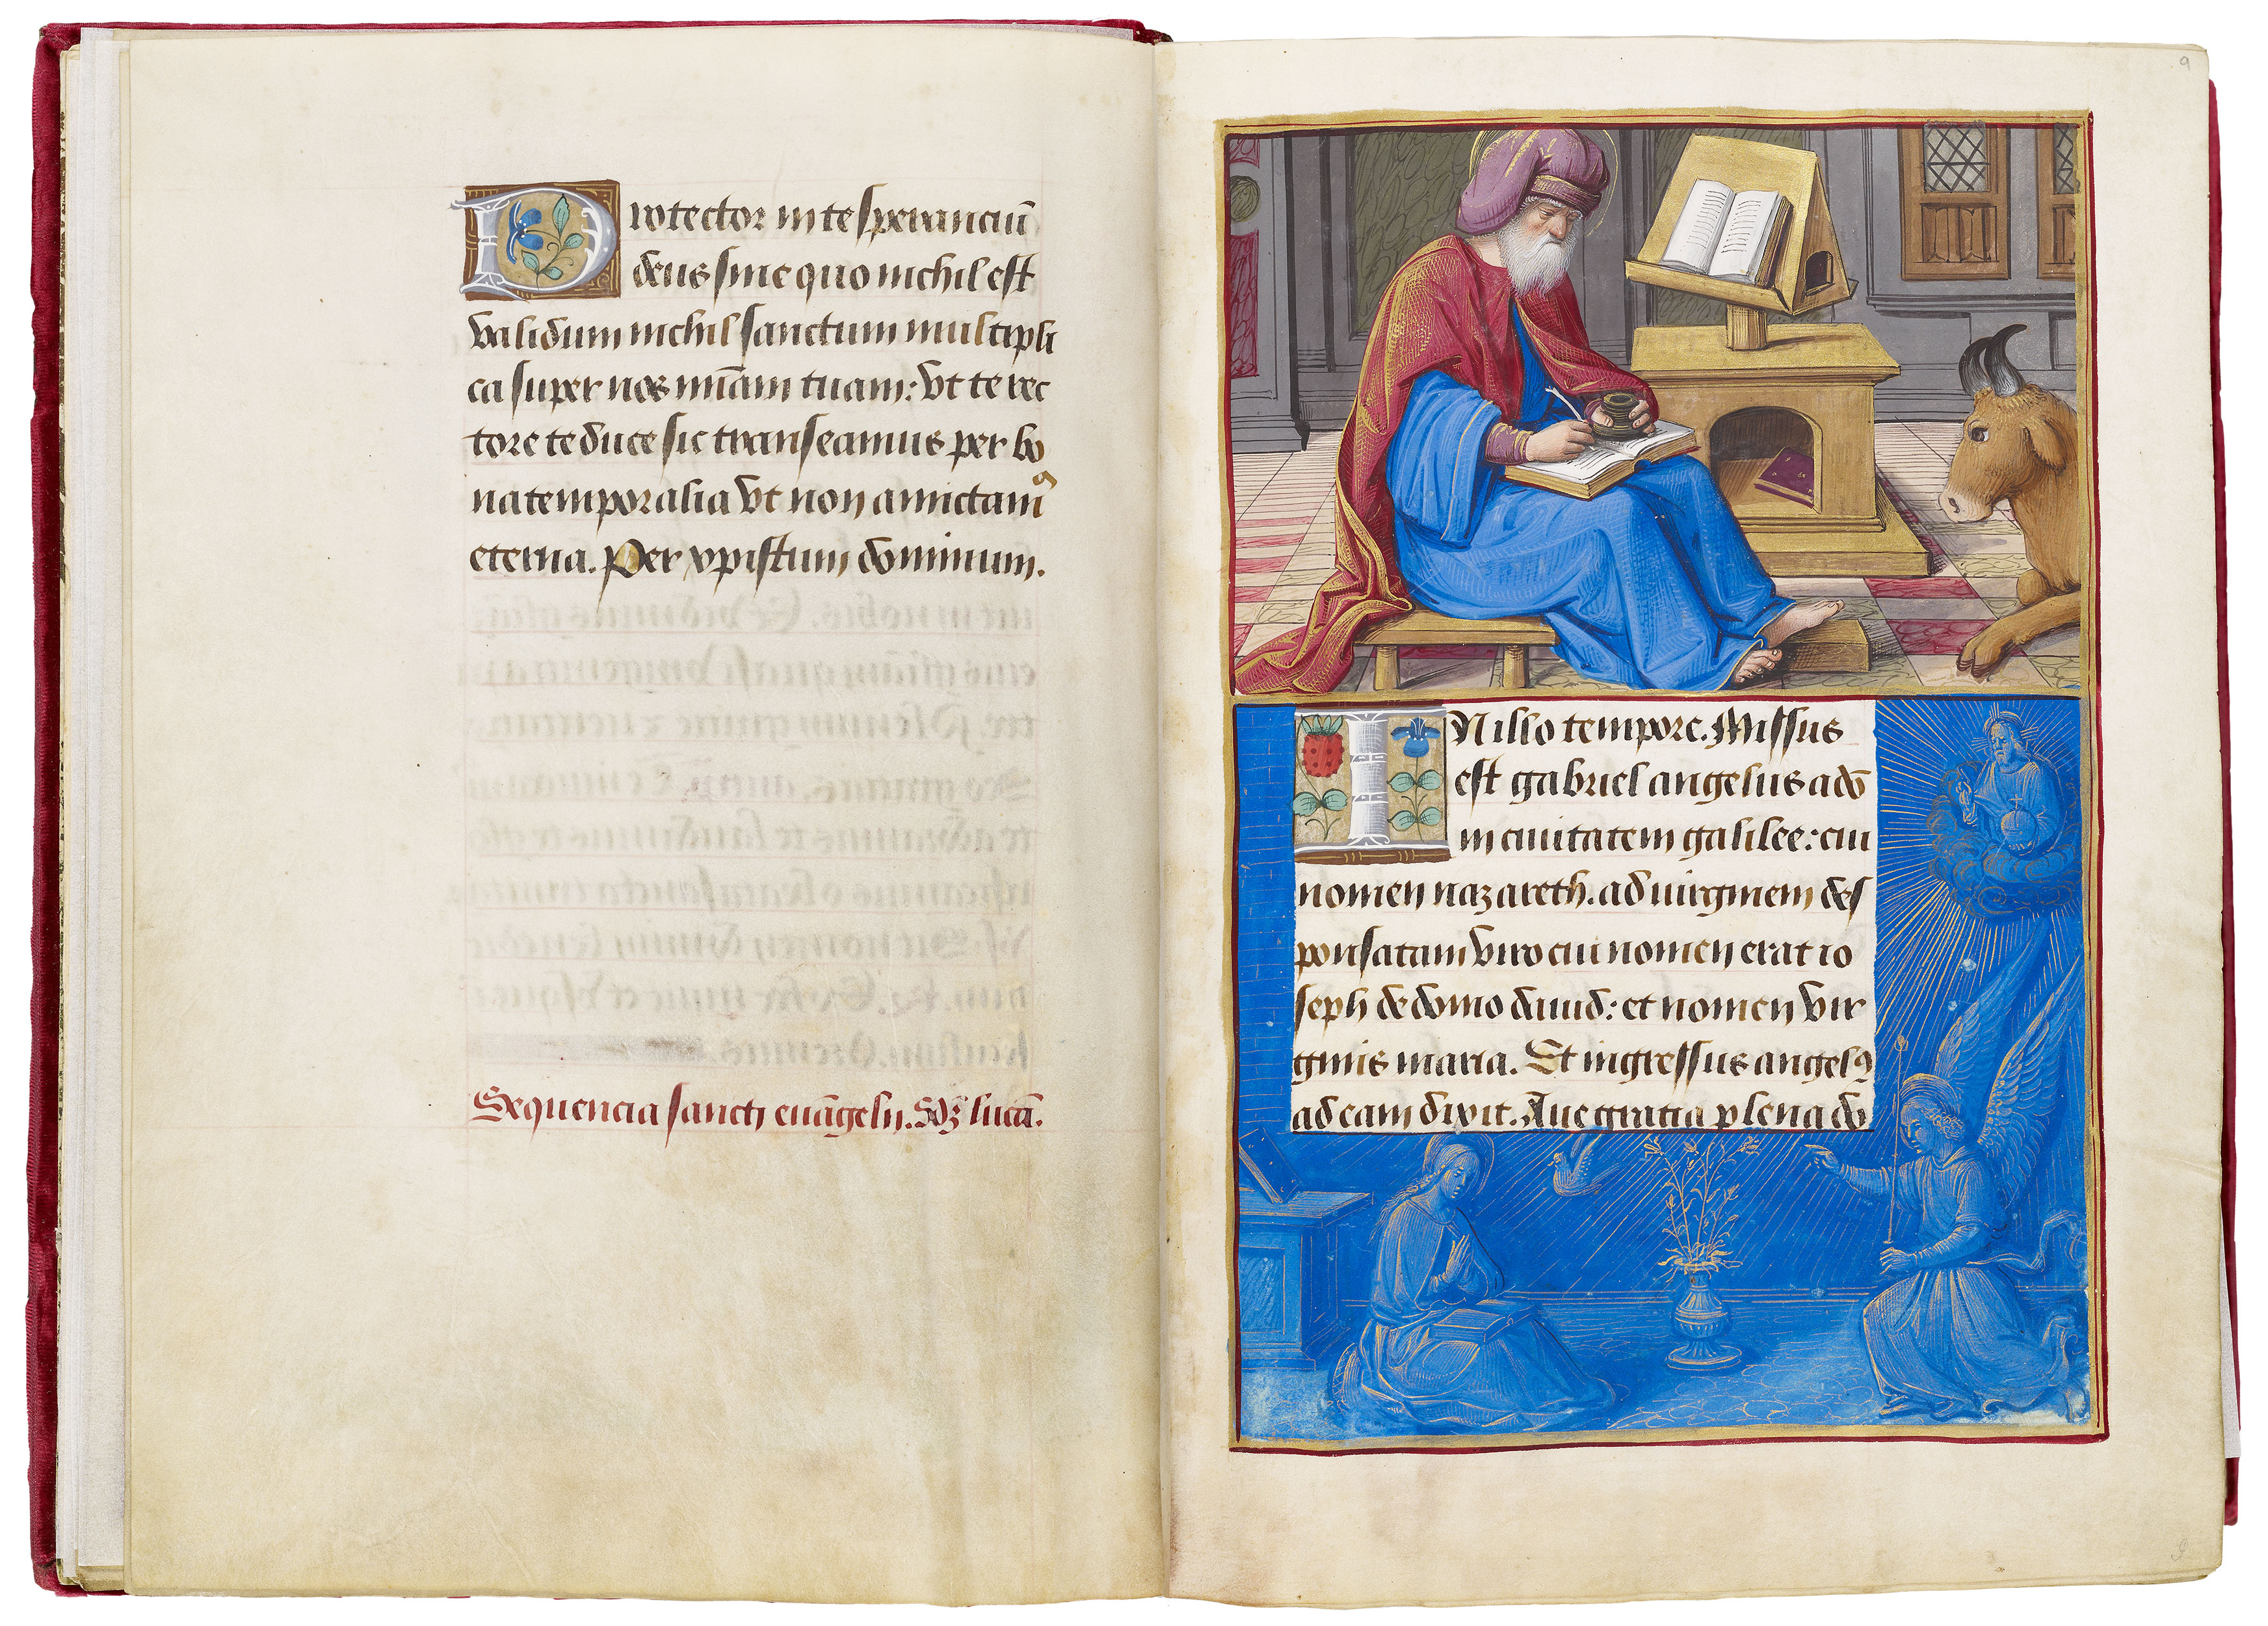 Protector in te speranciū
deus sine quo nichil est
validum nichil sanctum multipli
ca super nos mīam tuam: vt te rec
tore te duce sic transeamus per bo
na temporalia vt non amictamꝰ
eterna. Per xpistum dominum.
Sequencia sancti euāgelii. Scdȝ lucā.
9
IN illo tempore. Missus
est gabriel angelus a do
in ciuitatem galilee: cui
nomen nazareth. ad uirginem des
ponsatam viro cui nomen erat io
seph de domo dauid: et nomen vir
ginis maria. Et ingressus angelꝰ
ad eam dixit. Aue gratia plena do